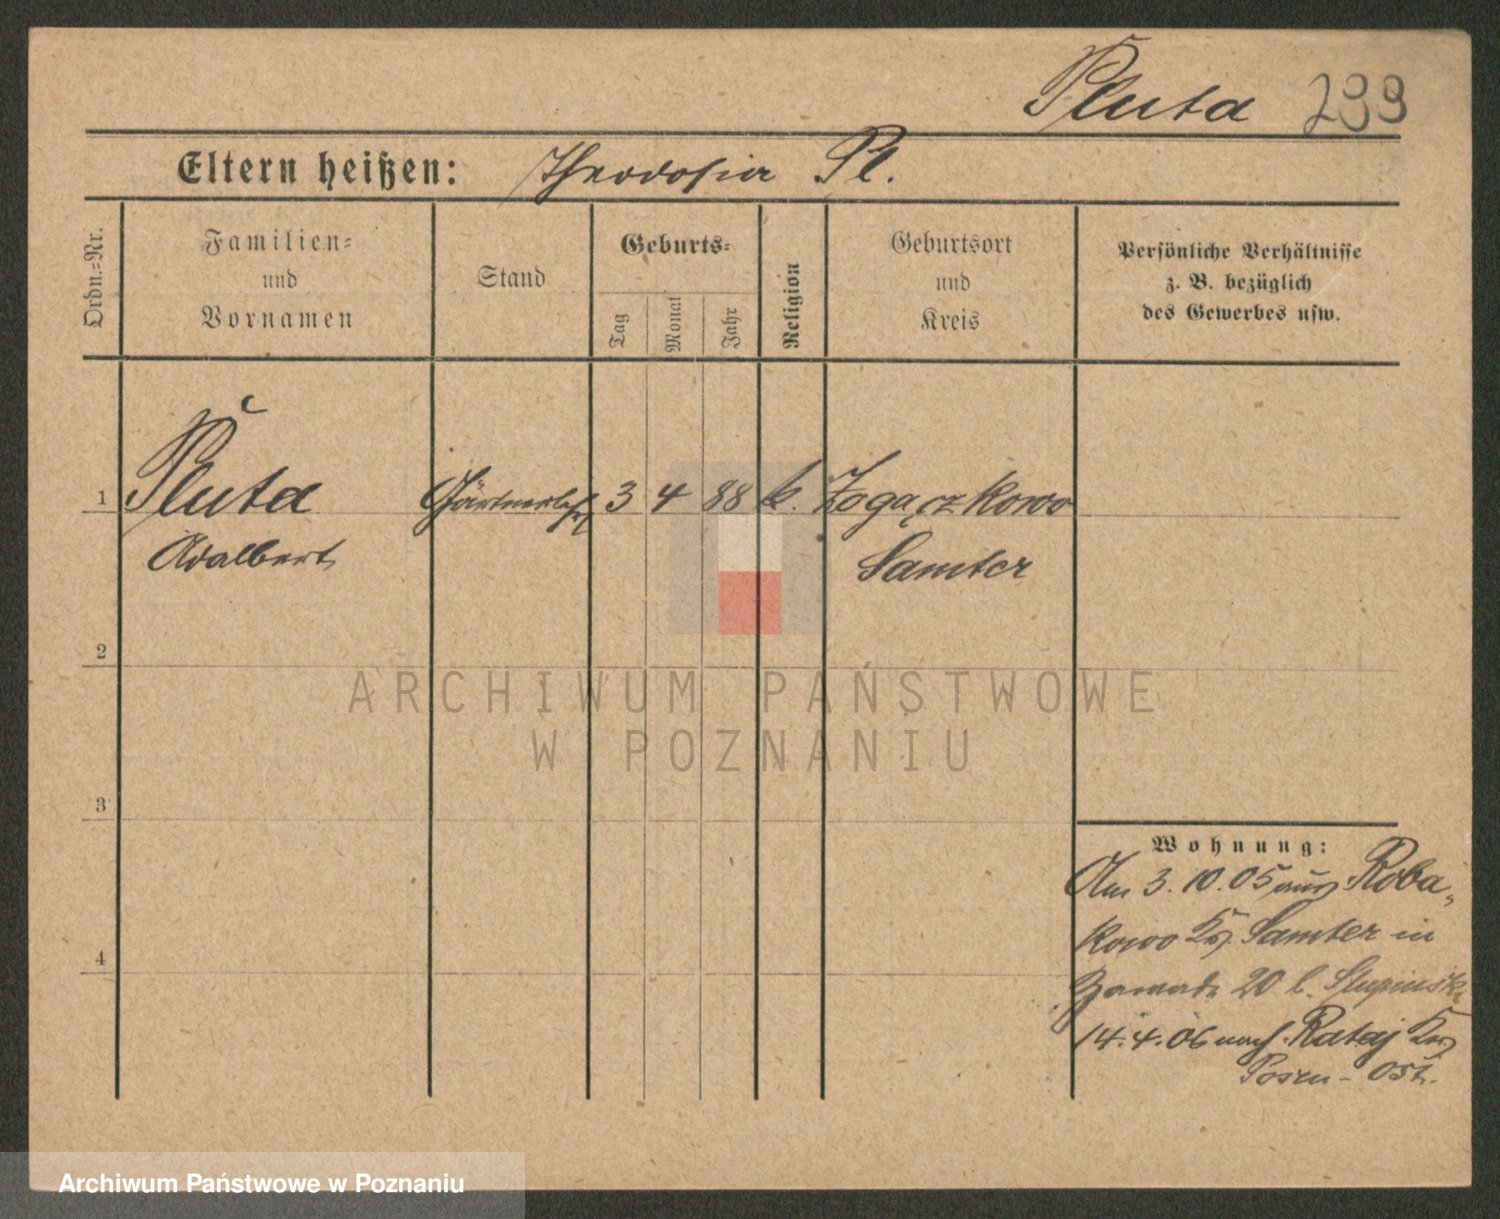 Pluta 299
Eltern heißen: Theodosia Pl.
Ordn.-Nr.
Familien- und Vornamen
Stand
Geburts-
Tag
Monat
Jahr
Religion
Geburtsort und Kreis
Persönliche Verhältnisse
z. B. bezüglich
des Gewerbes usw.
1 Pluta Gärtnerlehrl 3 4 88 k.
Adalbert Samter
2
ARCHIWUM PAŃSTWOWE
W POZNANIU
3
Wohnung:
Am 3. 10. 05 aus Roba-
kowo Kr. Samter in
20 b.
4
14. 4. 06 nach Rataj Kr.
Posen-Ost.
Archiwum Państwowe w Poznaniu